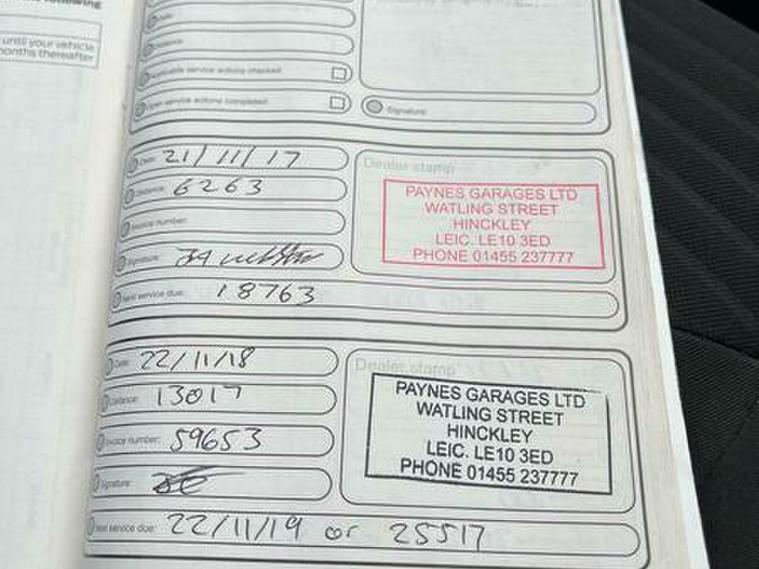 until your vehicle
months thereafter
Date:
Distance:
Applicable service actions checked:
Open service actions completed:
Signature:
Date: 21/11/17
Distance: 6263
Invoice number:
Signature:
Next service due: 18763
Dealer stamp
PAYNES GARAGES LTD
WATLING STREET
HINCKLEY
LEIC. LE10 3ED
PHONE 01455 237777
Date: 22/11/18
Distance: 13017
Invoice number: 59653
Signature:
Dealer stamp
PAYNES GARAGES LTD
WATLING STREET
HINCKLEY
LEIC. LE10 3ED
PHONE 01455 237777
Next service due: 22/11/19 or 25517